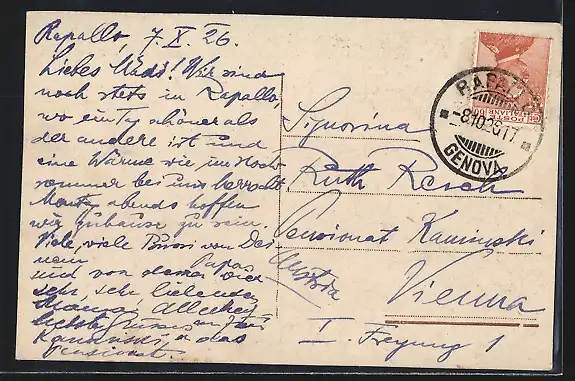 Rapallo, 7.X.26.
Liebes Mädi! Wir sind
noch stets in Rapallo,
wo ein Tag schöner als
der andere ist und
eine Wärme wie im Hoch-
sommer bei uns herrscht.
Montag abends hoffen
wir zuhause zu sein.
Viele, viele Bussi von Dei
nem Papa
und von deiner Dich
sehr, sehr liebenden
Mama, Allerherz
lichste Grüsse an
Kaminski, u das
Pensionat.
Signorina
Ruth Resch
Pensionat Kaminski
Austria
Vienna
I. Freyung 1
RAPALLO
-8.10.26.17
GENOVA
POSTE
ITALIANE